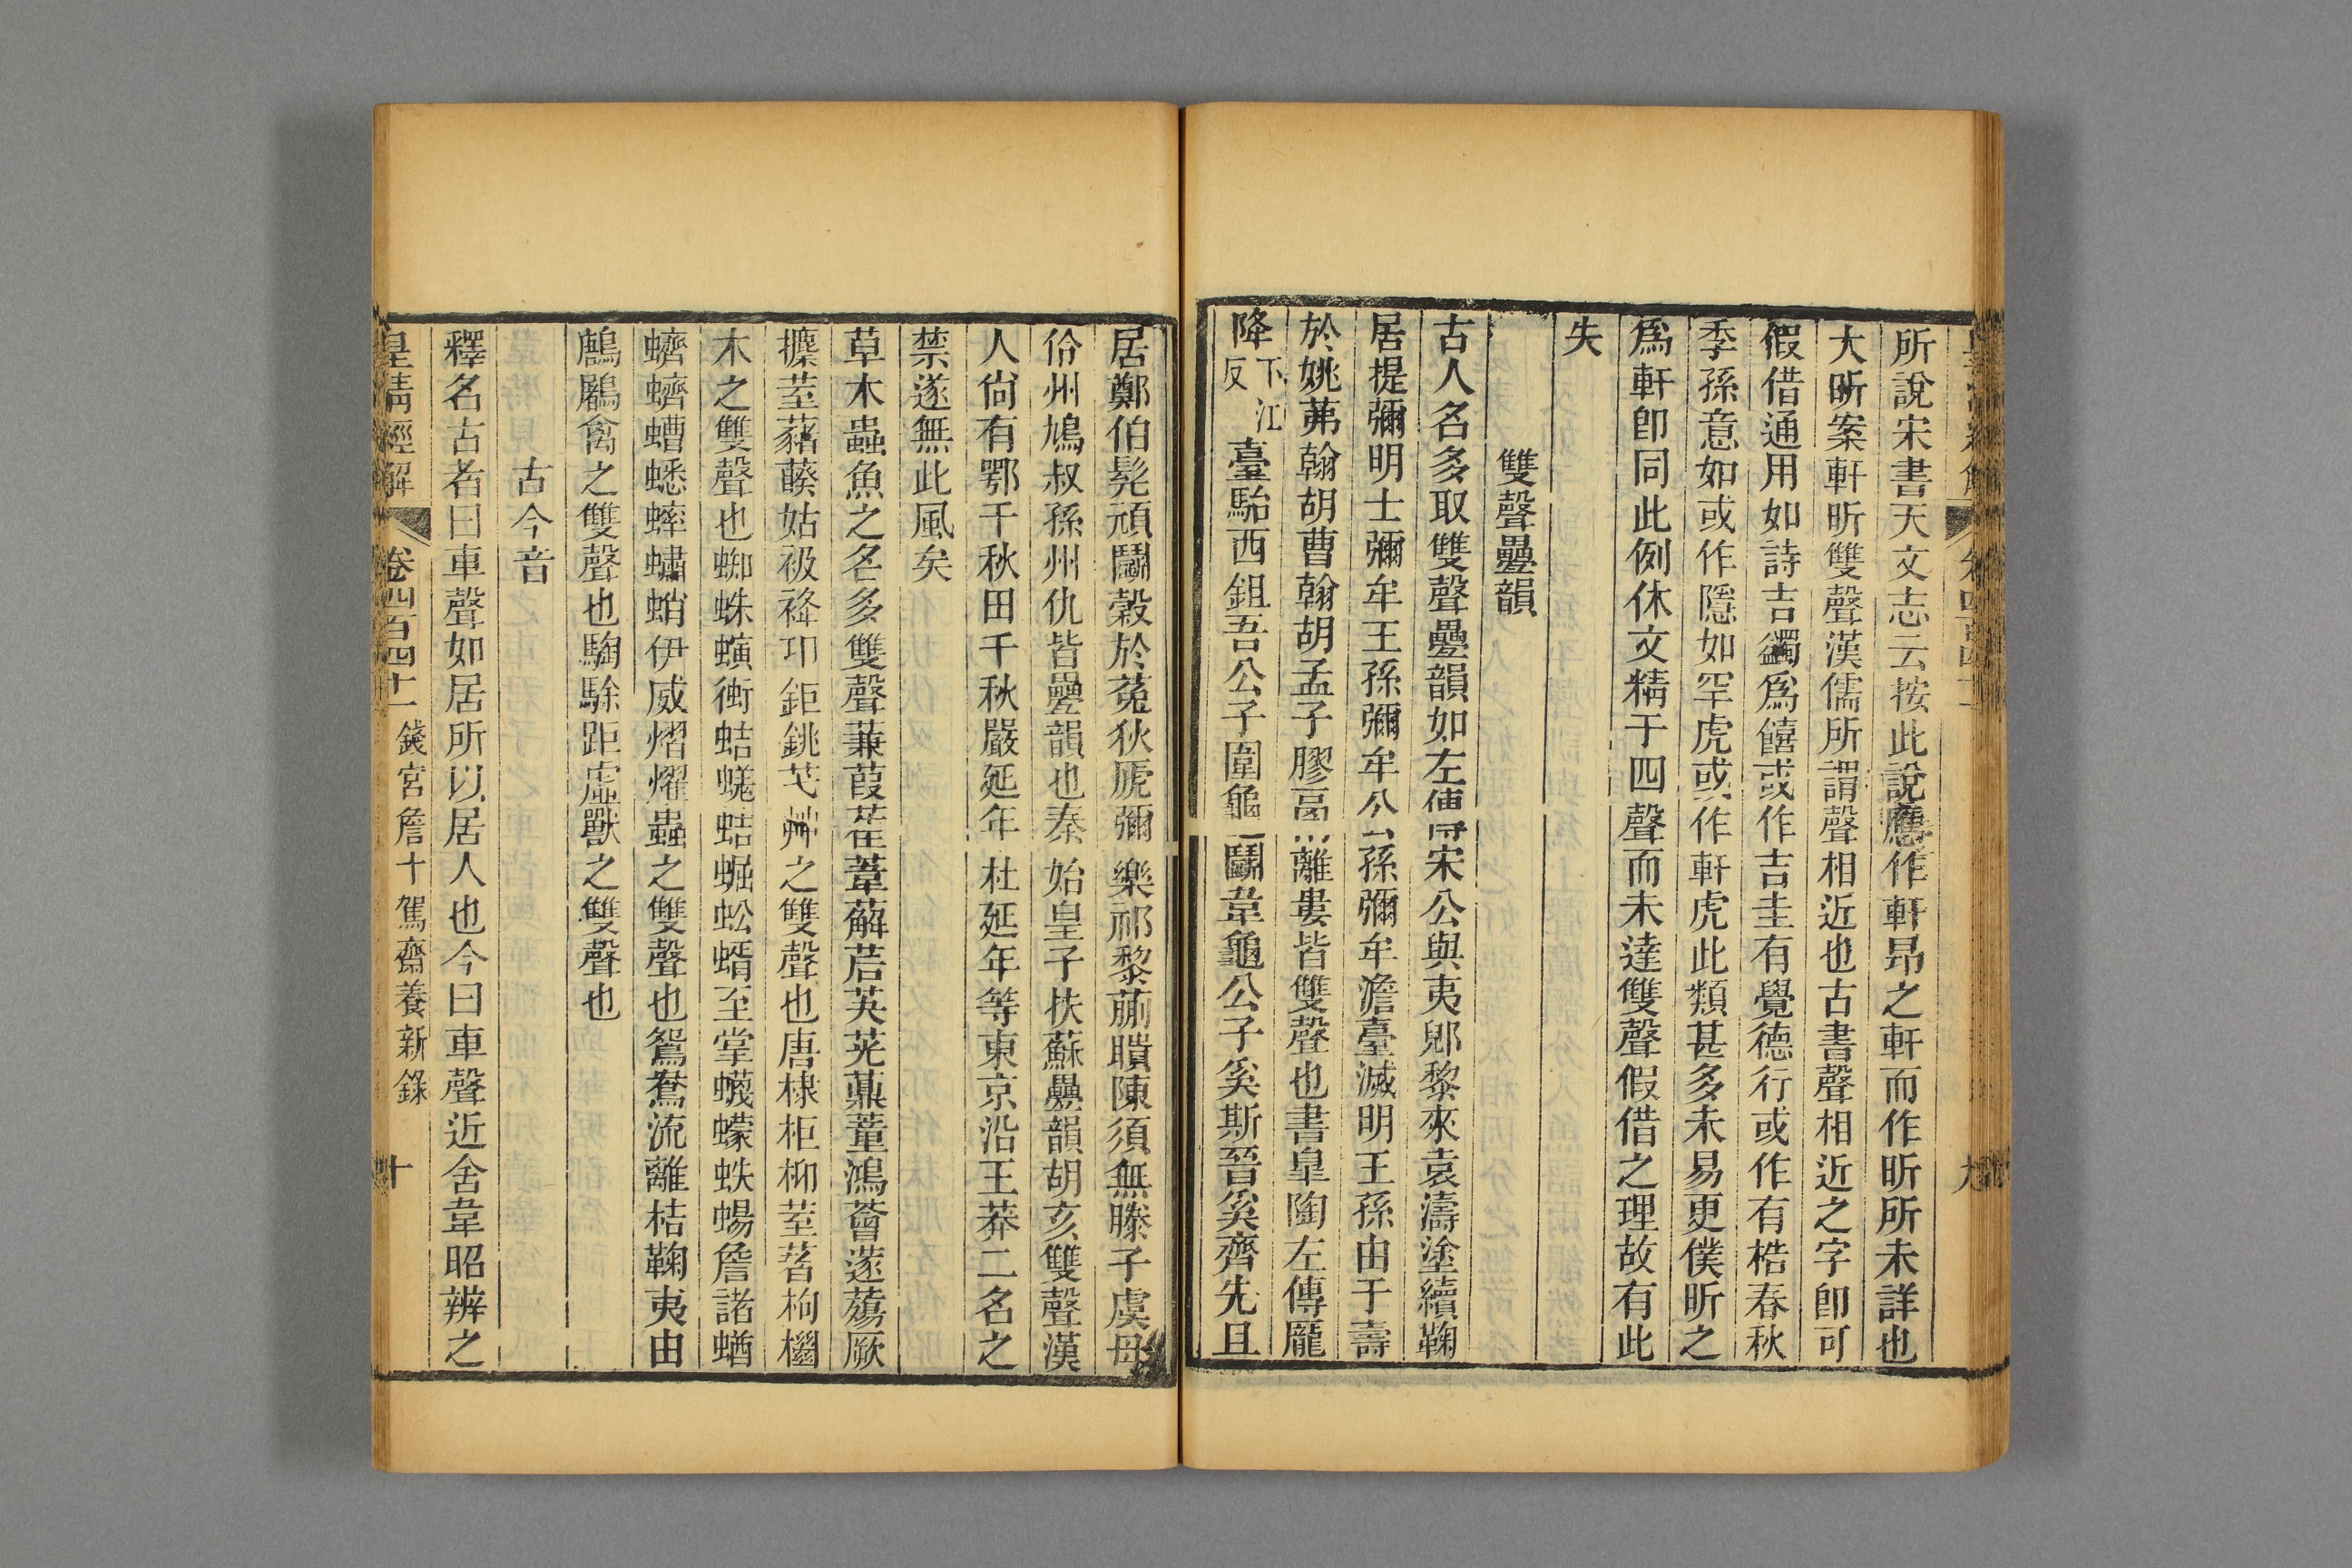 所說宋書天文志云按此說應作軒昻之軒而作昕所未詳也
大昕案軒昕雙聲漢儒所謂聲相近也古書聲相近之字卽可
假借通用如詩吉蠲爲饎或作吉圭有覺德行或作有梏春秋
季孫意如或作隱如罕虎或作軒虎此類甚多未易更僕昕之
爲軒卽同此例休文精于四聲而未達雙聲假借之理故有此
失
雙聲疊韻
古人名多取雙聲疊韻如左傳宋公與夷郳黎來袁濤塗續鞠
居提彌明士彌牟王孫彌牟公孫彌牟澹臺滅明王孫由于壽
於姚茀翰胡曹翰胡孟子膠鬲離婁皆雙聲也書臯陶左傳龎
降下江反臺駘西鉏吾公子圍龜鬬韋龜公子奚斯晉奚齊先且
居鄭伯髡頑鬬穀於菟狄虒彌樂祁黎蒯聵陳須無滕子虞母
伶州鳩叔孫州仇皆疊韻也秦始皇子扶蘇疊韻胡亥雙聲漢
人尙有鄂千秋田千秋嚴延年杜延年等東京沿王莽二名之
禁遂無此風矣
草木蟲魚之名多雙聲蒹葭萑葦薢茩芵茪薡蕫鴻薈蓫薚厥
攗莖藸蒤姑𧙃袶卭鉅銚芅艸之雙聲也唐棣柜柳莖著枸檵
木之雙聲也蜘蛛蟥蛢蛣蜣蛣蜛蚣蝑至掌蠛蠓蛈蝪詹諸蝤
蠐蠐螬蟋蟀蟰蛸伊威熠燿蟲之雙聲也鴛鴦流離桔鞠夷由
鷓鸝禽之雙聲也騊駼距虛獸之雙聲也
古今音
釋名古者曰車聲如居所以居人也今曰車聲近舍韋昭辨之
皇淸經解 卷四百四十一 錢宮詹十駕齋養新錄 十